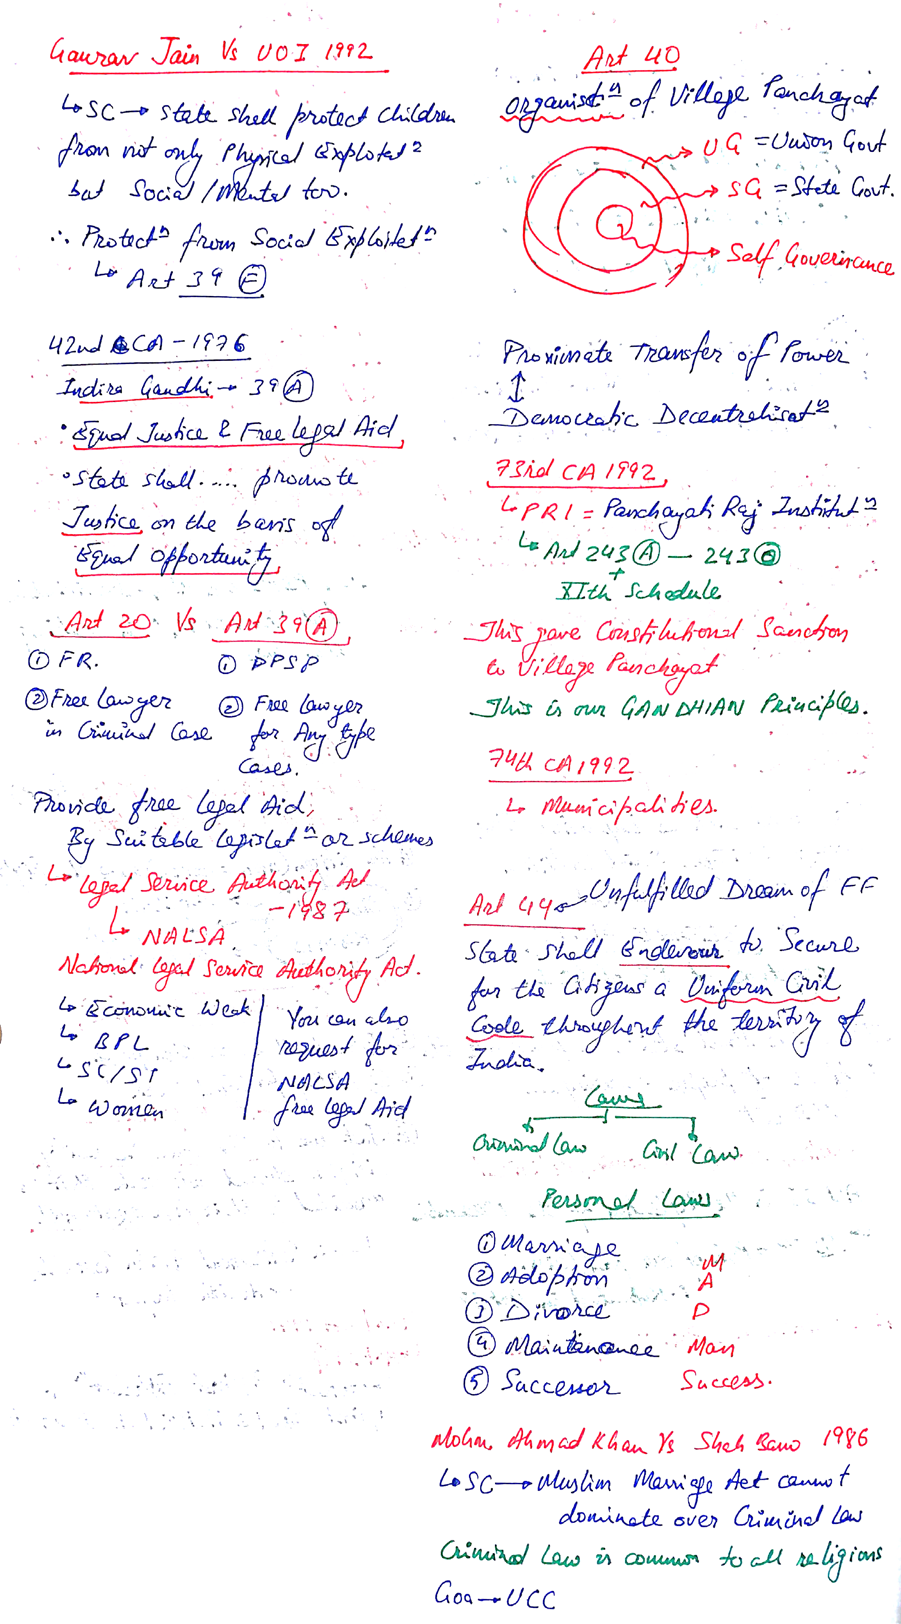 Gaurav Jain Vs UOI 1992
↳ SC → State shall protect children
from not only Physical Exploitatⁿ
but Social / Mental too.
∴ Protectⁿ from Social Exploitatⁿ
↳ Art 39 (F)
42nd CA - 1976
Indira Gandhi → 39 (A)
• Equal Justice & Free Legal Aid
• State shall..... promote
Justice on the basis of
Equal opportunity
Art 20 Vs Art 39 (A)
① FR. ① DPSP
② Free Lawyer ② Free Lawyer
in Criminal Case for Any type
Cases.
Provide free Legal Aid,
By Suitable Legislatⁿ or schemes
↳ Legal Service Authority Act
- 1987
↳ NALSA
National Legal Service Authority Act.
↳ Economic Weak
↳ BPL
↳ SC/ST
↳ Women
You can also
request for
NALSA
free Legal Aid
Art 40
Organisatⁿ of Village Panchayat
UG = Union Govt
SG = State Govt.
Self Governance
Proximate Transfer of Power
↕
Democratic Decentralisatⁿ
73rd CA 1992
↳ PRI = Panchayati Raj Institutⁿ
↳ Art 243 (A) — 243 (O)
+
XIth Schedule
This gave Constitutional Sanction
to Village Panchayat
This is our GANDHIAN Principles.
74th CA 1992
↳ Municipalities.
Art 44 → Unfulfilled Dream of FF
State shall Endevour to Secure
for the Citizens a Uniform Civil
Code throughout the territory of
India.
Laws
Criminal Law Civil Law.
Personal Laws
① Marriage M
② Adoption A
③ Divorce D
④ Maintenance Man
⑤ Successor Success.
Mohm. Ahmad Khan Vs Shah Bano 1986
↳ SC → Muslim Marriage Act cannot
dominate over Criminal Law
Criminal Law is common to all religions
Goa → UCC